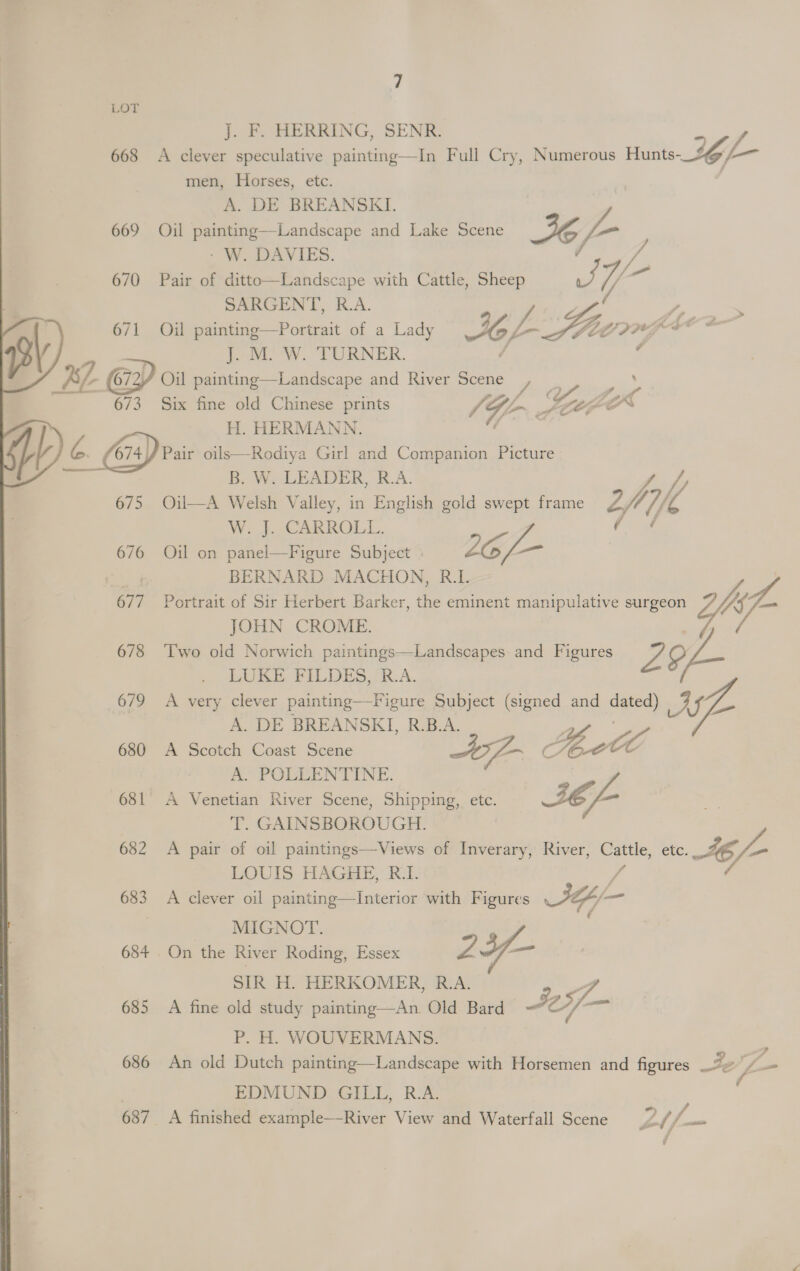 7
LOT
J. F. HERRING, SENR.
668 A clever speculative painting—In Full Cry, Numerous Hunts- 36/-
men, Horses, etc.
A. DE BREANSKI.
669 Oil painting—Landscape and Lake Scene 36/-
W. DAVIES.
670 Pair of ditto—Landscape with Cattle, Sheep 37/-
SARGENT, R.A.
671 Oil painting—Portrait of a Lady 36/-
J. M. W. TURNER.
672 Oil painting—Landscape and River Scene
673 Six fine old Chinese prints
H. HERMANN.
674 Pair oils—Rodiya Girl and Companion Picture
B. W. LEADER, R.A.
675 Oil—A Welsh Valley, in English gold swept frame
W. J. CARROLL.
676 Oil on panel—Figure Subject 26/-
BERNARD MACHON, R.I.
677 Portrait of Sir Herbert Barker, the eminent manipulative surgeon
JOHN CROME.
678 Two old Norwich paintings—Landscapes and Figures 29/-
LUKE FILDES, R.A.
679 A very clever painting—Figure Subject (signed and dated)
A. DE BREANSKI, R.B.A.
680 A Scotch Coast Scene
A. POLLENTINE.
681 A Venetian River Scene, Shipping, etc. 36/-
T. GAINSBOROUGH.
682 A pair of oil paintings—Views of Inverary, River, Cattle, etc. 36/-
LOUIS HAGHE, R.I.
683 A clever oil painting—Interior with Figures
MIGNOT.
684 On the River Roding, Essex
SIR H. HERKOMER, R.A.
685 A fine old study painting—An Old Bard
P. H. WOUVERMANS.
686 An old Dutch painting—Landscape with Horsemen and figures
EDMUND GILL, R.A.
687 A finished example—River View and Waterfall Scene